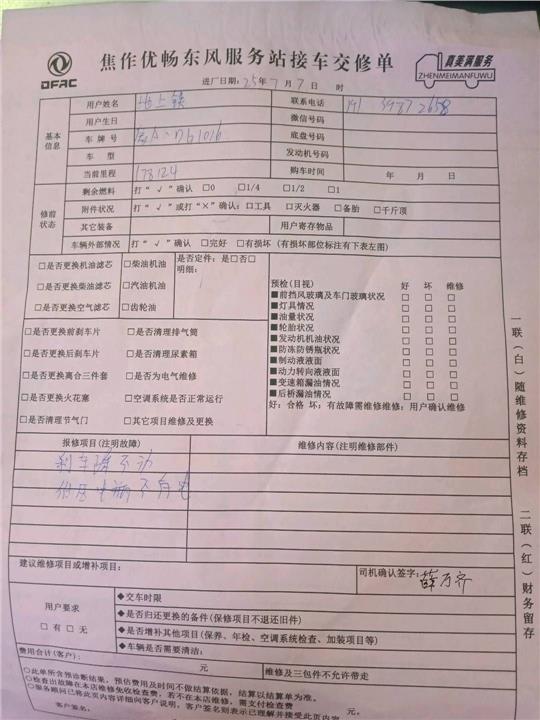 DFAC
焦作优畅东风服务站接车交修单
真美满服务
ZHENMEIMANFUWU
进厂日期：25年7月7日 时
基本信息
用户姓名 联系电话 191 3987 2658
用户生日 微信号码
车牌号 底盘号码
车型 发动机号码
当前里程 178124 购车时间 年 月 日
修前状态
剩余燃料 打“√”确认 □0 □1/4 □1/2 □1
附件状况 打“√”或打“×”确认：□工具 □灭火器 □备胎 □千斤顶
其它装备 用户寄存物品
车辆外部情况 打“√”确认 □完好 □有损坏（有损坏部位标注有下表左图）
□是否更换机油滤芯 □柴油机油 是否定件：是□否□
明细：
□是否更换柴油滤芯 □汽油机油
□是否更换空气滤芯 □齿轮油
□是否更换前刹车片 □是否清理排气筒
□是否更换后刹车片 □是否清理尿素箱
□是否更换离合三件套 □是否为电气维修
□是否更换火花塞 □空调系统是否正常运行
□是否清理节气门 □其它项目维修及更换
预检（目视） 好 坏 维修
■前挡风玻璃及车门玻璃状况 □ □ □
■灯具情况 □ □ □
■油量状况 □ □ □
■轮胎状况 □ □ □
■发动机机油状况 □ □ □
■防冻防锈瓶状况 □ □ □
■制动液液面 □ □ □
■动力转向液液面 □ □ □
■变速箱漏油情况 □ □ □
■后桥漏油情况 □ □ □
好：合格 坏：有故障需维修维修：用户确认维修
报修项目（注明故障） 维修内容（注明维修部件）
建议维修项目或增补项目：
司机确认签字：薛万齐
用户要求
□有 □无
◆交车时限
◆是否归还更换的备件（保修项目不退还旧件）
◆是否增补其他项目（保养、年检、空调系统检查、加装项目等）
◆车辆是否需要清洁：
费用合计（客户）： 元 维修及三包件不允许带走
○此单所含预诊断结果，预估费用及时间不做结算依据，结算以结算单为准。
○检查出故障在本店维修免收检查费，若不在本店维修，需支付检查费 元
○服务顾问已将此页内容详细向客户说明，客户签名则表示已理解并接受此页内容
客户签名：
一联（白）随维修资料存档
二联（红）财务留存